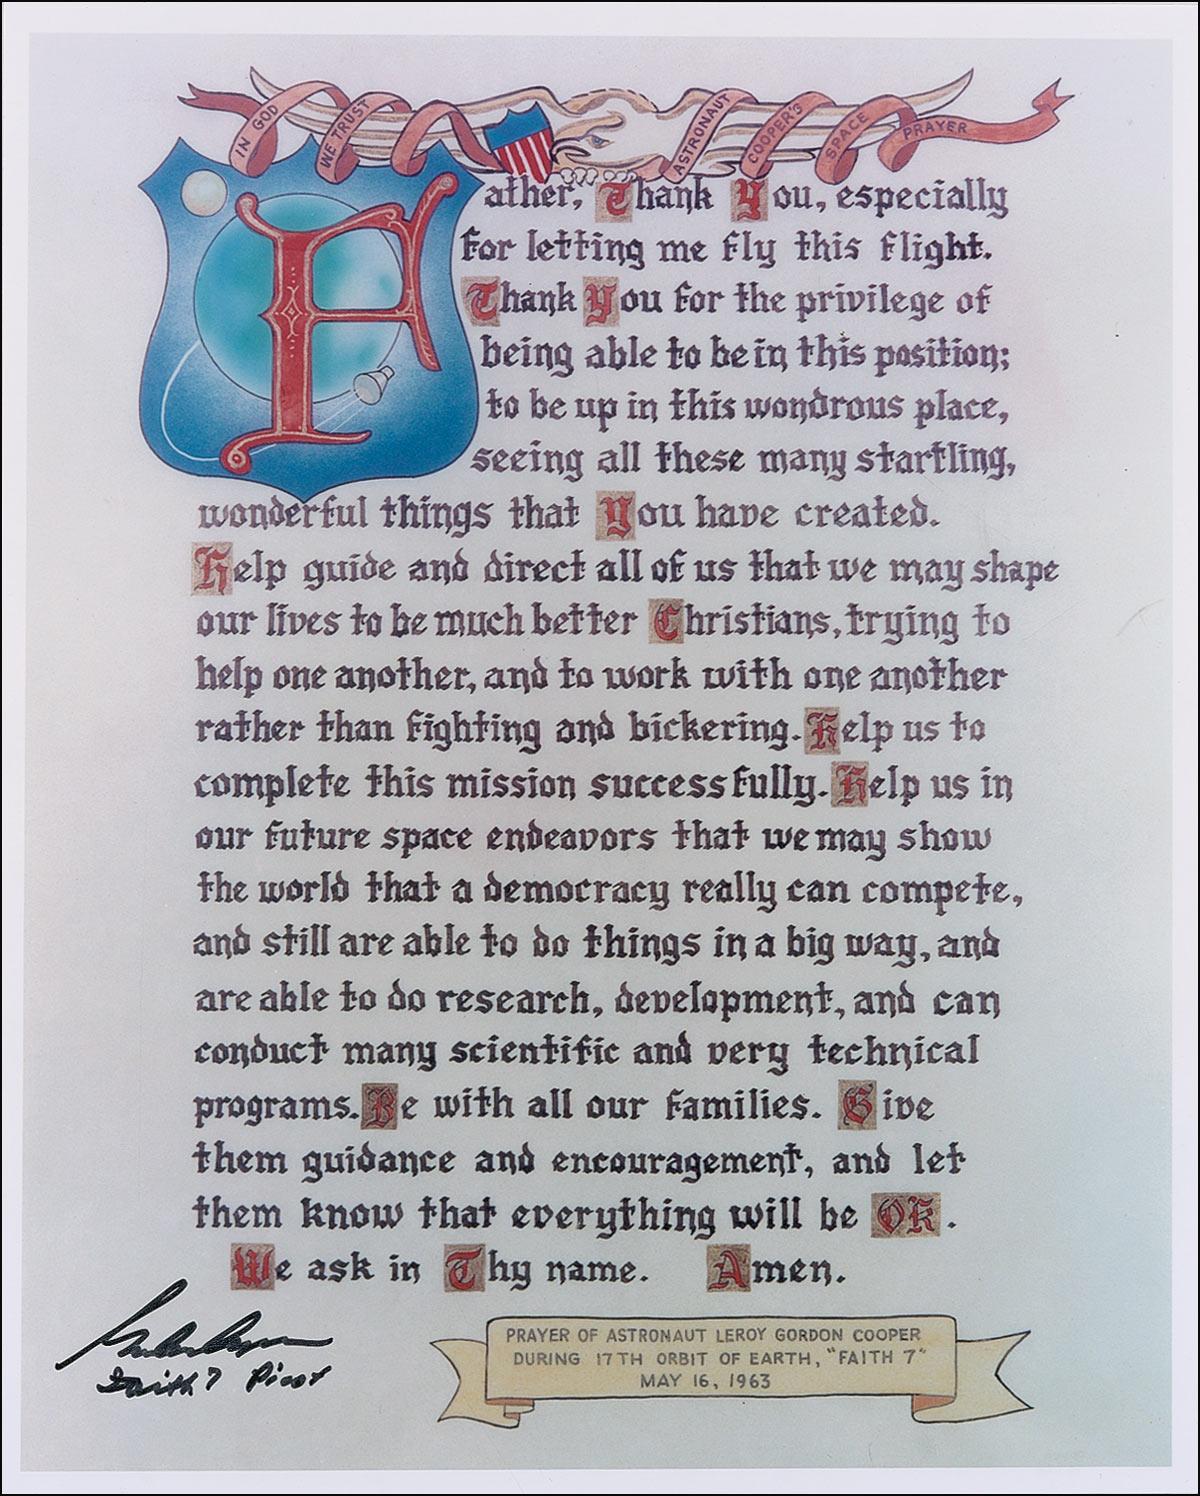 IN GOD WE TRUST ASTRONAUT COOPER'S SPACE PRAYER
Father, Thank You, especially
for letting me fly this flight.
Thank You for the privilege of
being able to be in this position;
to be up in this wondrous place,
seeing all these many startling,
wonderful things that You have created.
Help guide and direct all of us that we may shape
our lives to be much better Christians, trying to
help one another, and to work with one another
rather than fighting and bickering. Help us to
complete this mission successfully. Help us in
our future space endeavors that we may show
the world that a democracy really can compete,
and still are able to do things in a big way, and
are able to do research, development, and can
conduct many scientific and very technical
programs. Be with all our families. Give
them guidance and encouragement, and let
them know that everything will be OK.
We ask in Thy name. Amen.
Faith 7 Pilot
PRAYER OF ASTRONAUT LEROY GORDON COOPER
DURING 17TH ORBIT OF EARTH, "FAITH 7"
MAY 16, 1963